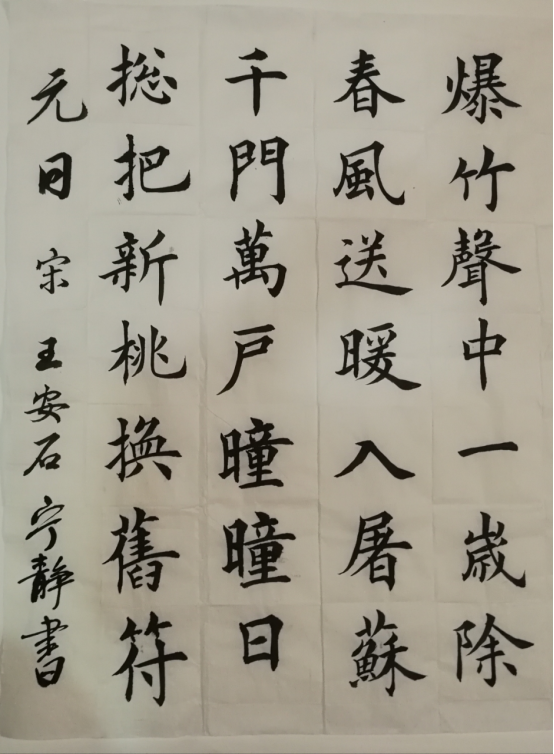 爆竹聲中一嵗除
春風送暖入屠蘇
千門萬戸曈曈日
捴把新桃換舊符
元日 宋 王安石 宁静書